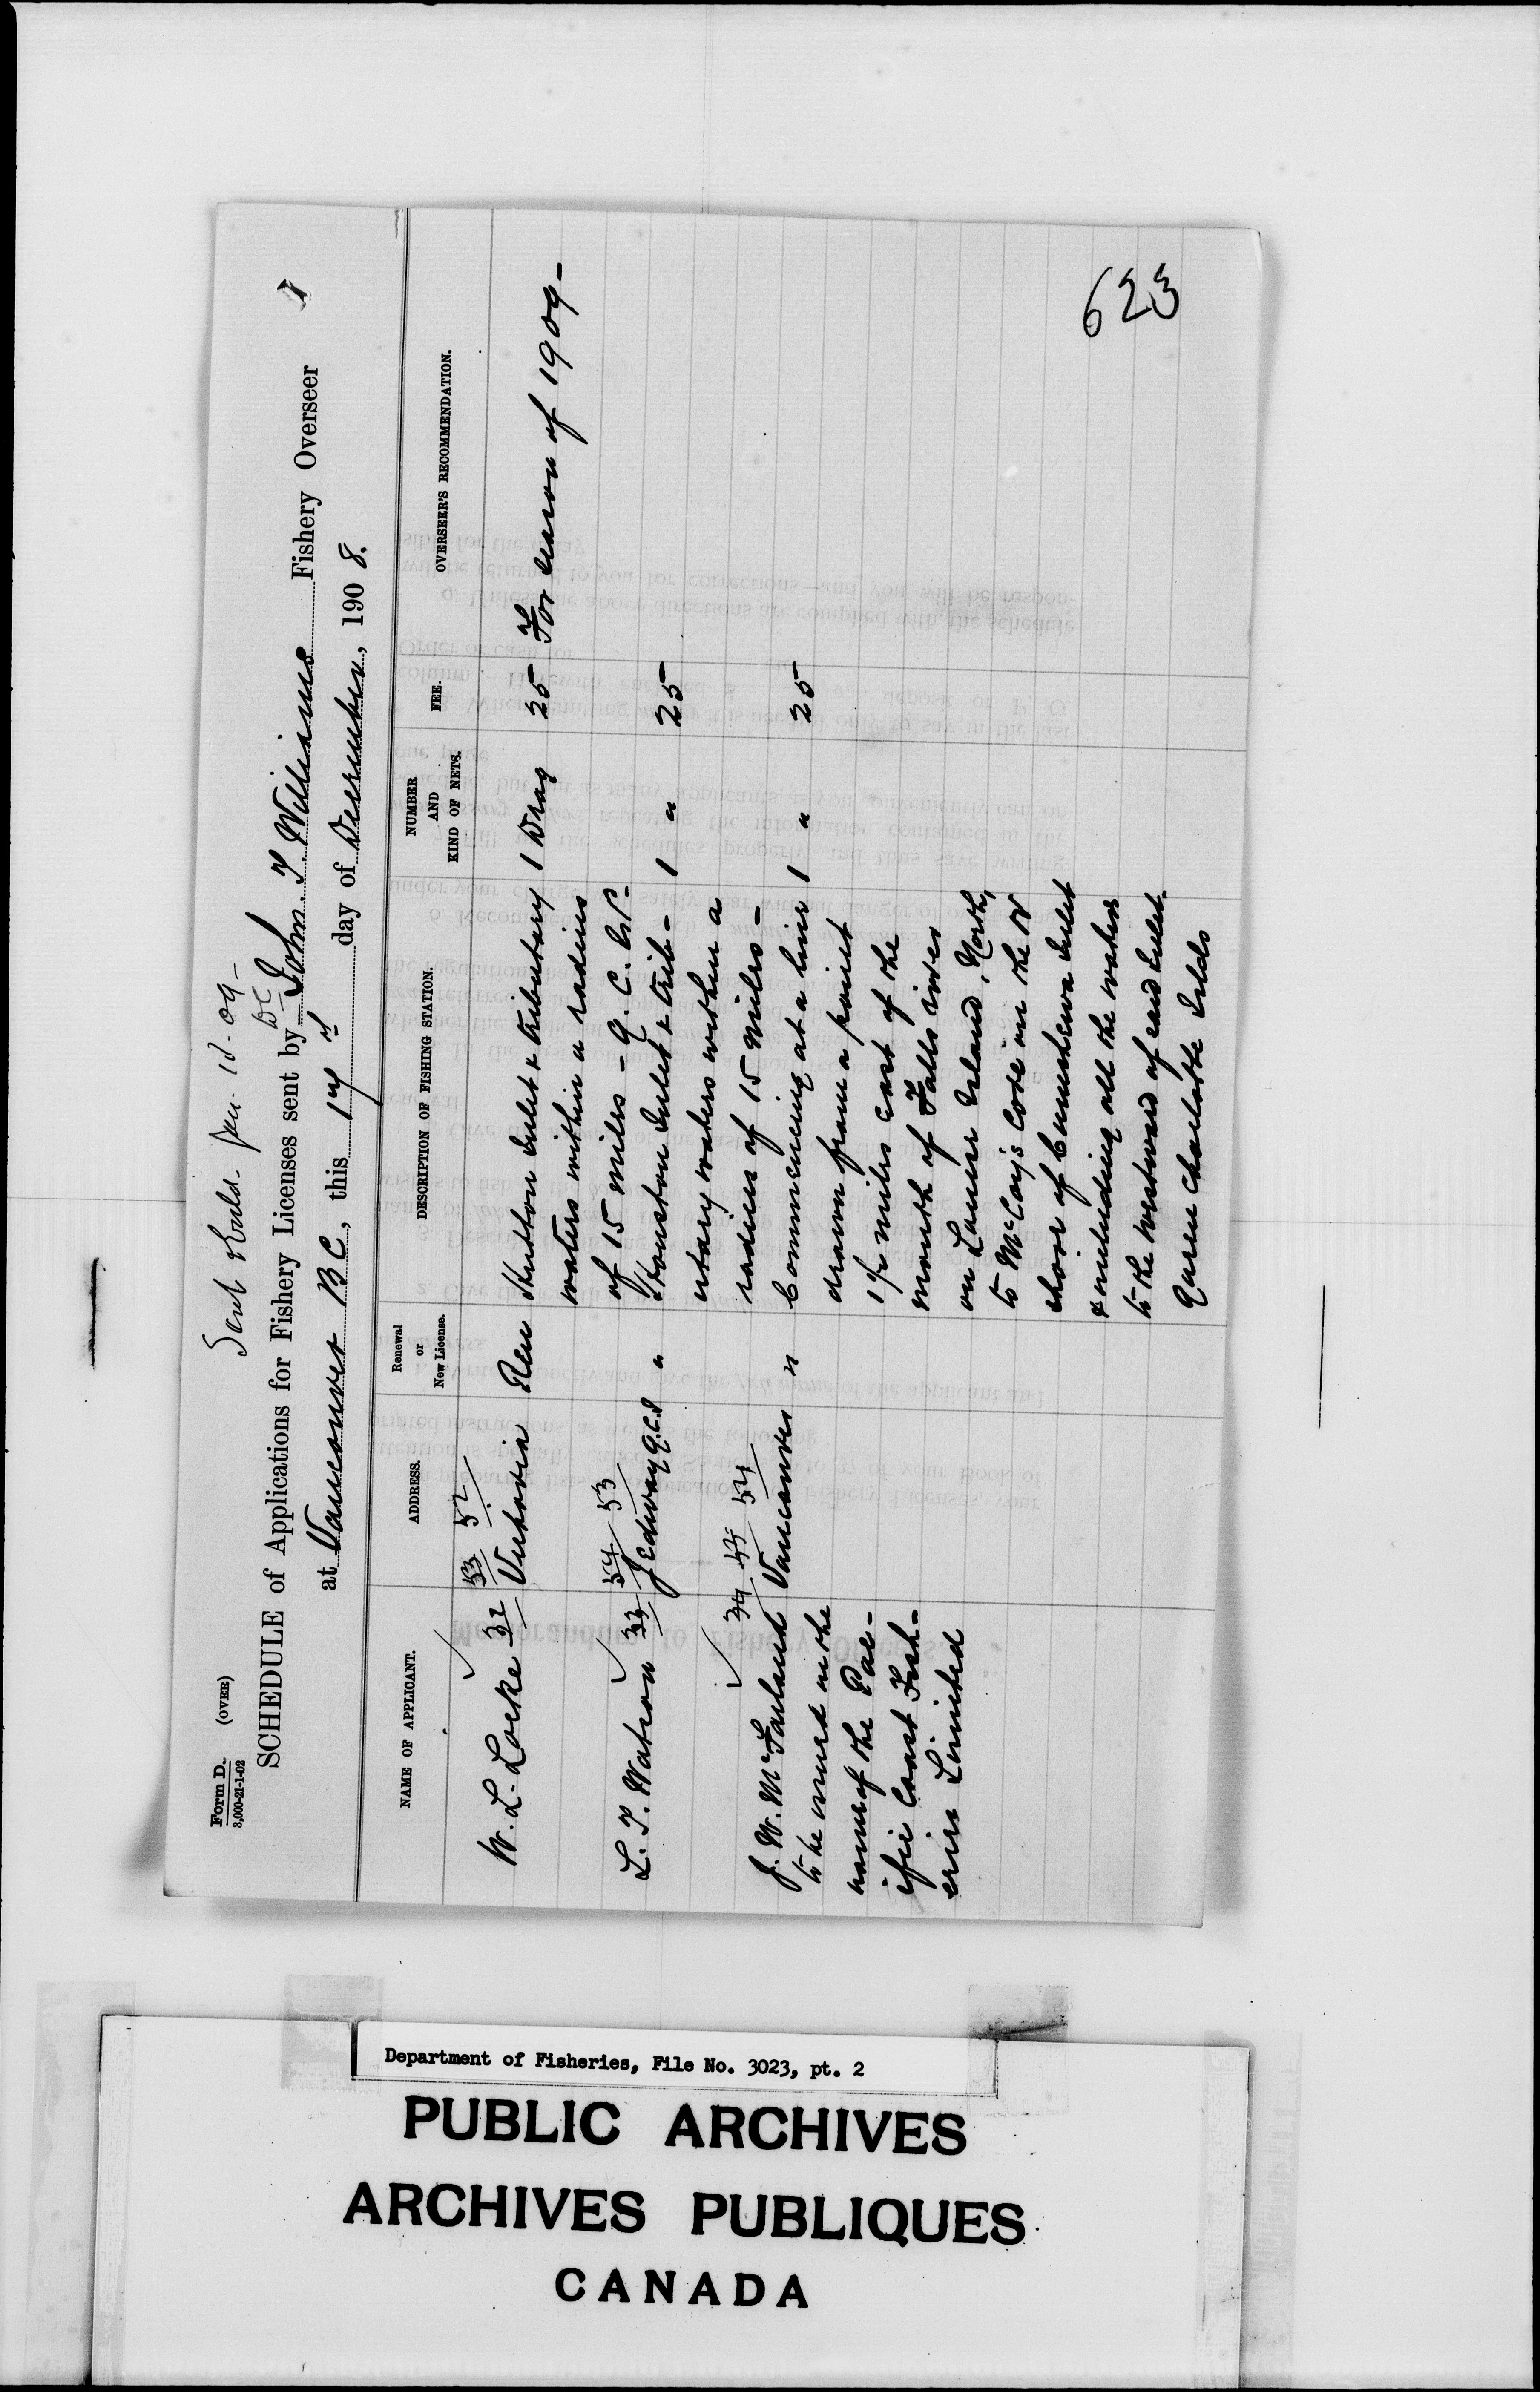 Form D. (OVER)
3,000-21-1-02
Sent Jan. 12-09-
SCHEDULE of Applications for Fishery Licenses sent by John. T. Williams Fishery Overseer
at Vancouver B C, this 17 day of December, 190 8.
NAME OF APPLICANT. ADDRESS. Renewal or New License. DESCRIPTION OF FISHING STATION. NUMBER AND KIND OF NETS. FEE. OVERSEER'S RECOMMENDATION.
53 52
W. L. Locke 32 Victoria Ren Hutton Inlet & tributary 1 Drag 25 For season of 1909-
waters within a radius
of 15 miles - Q. C. Gp-
54 53
L. T. Watson 33 Jedway Q.C.I " Houston Inlet & trib- 1 " 25
utary waters within a
radius of 15 miles -
34 55 54
J. W. McFarland Vancouver " Commencing at a line 1 " 25
to be issued in the drawn from a point
name of the Pac- 1½ miles east of the
ific Coast Fish- mouth of Falls river
eries Limited on Louise Island, North,
to McCoys Cove on the N
shore of Cumshewa Inlet
& including all the waters
to the westward of said Inlet.
Queen Charlotte Islds
623
Department of Fisheries, File No. 3023, pt. 2
PUBLIC ARCHIVES
ARCHIVES PUBLIQUES
CANADA